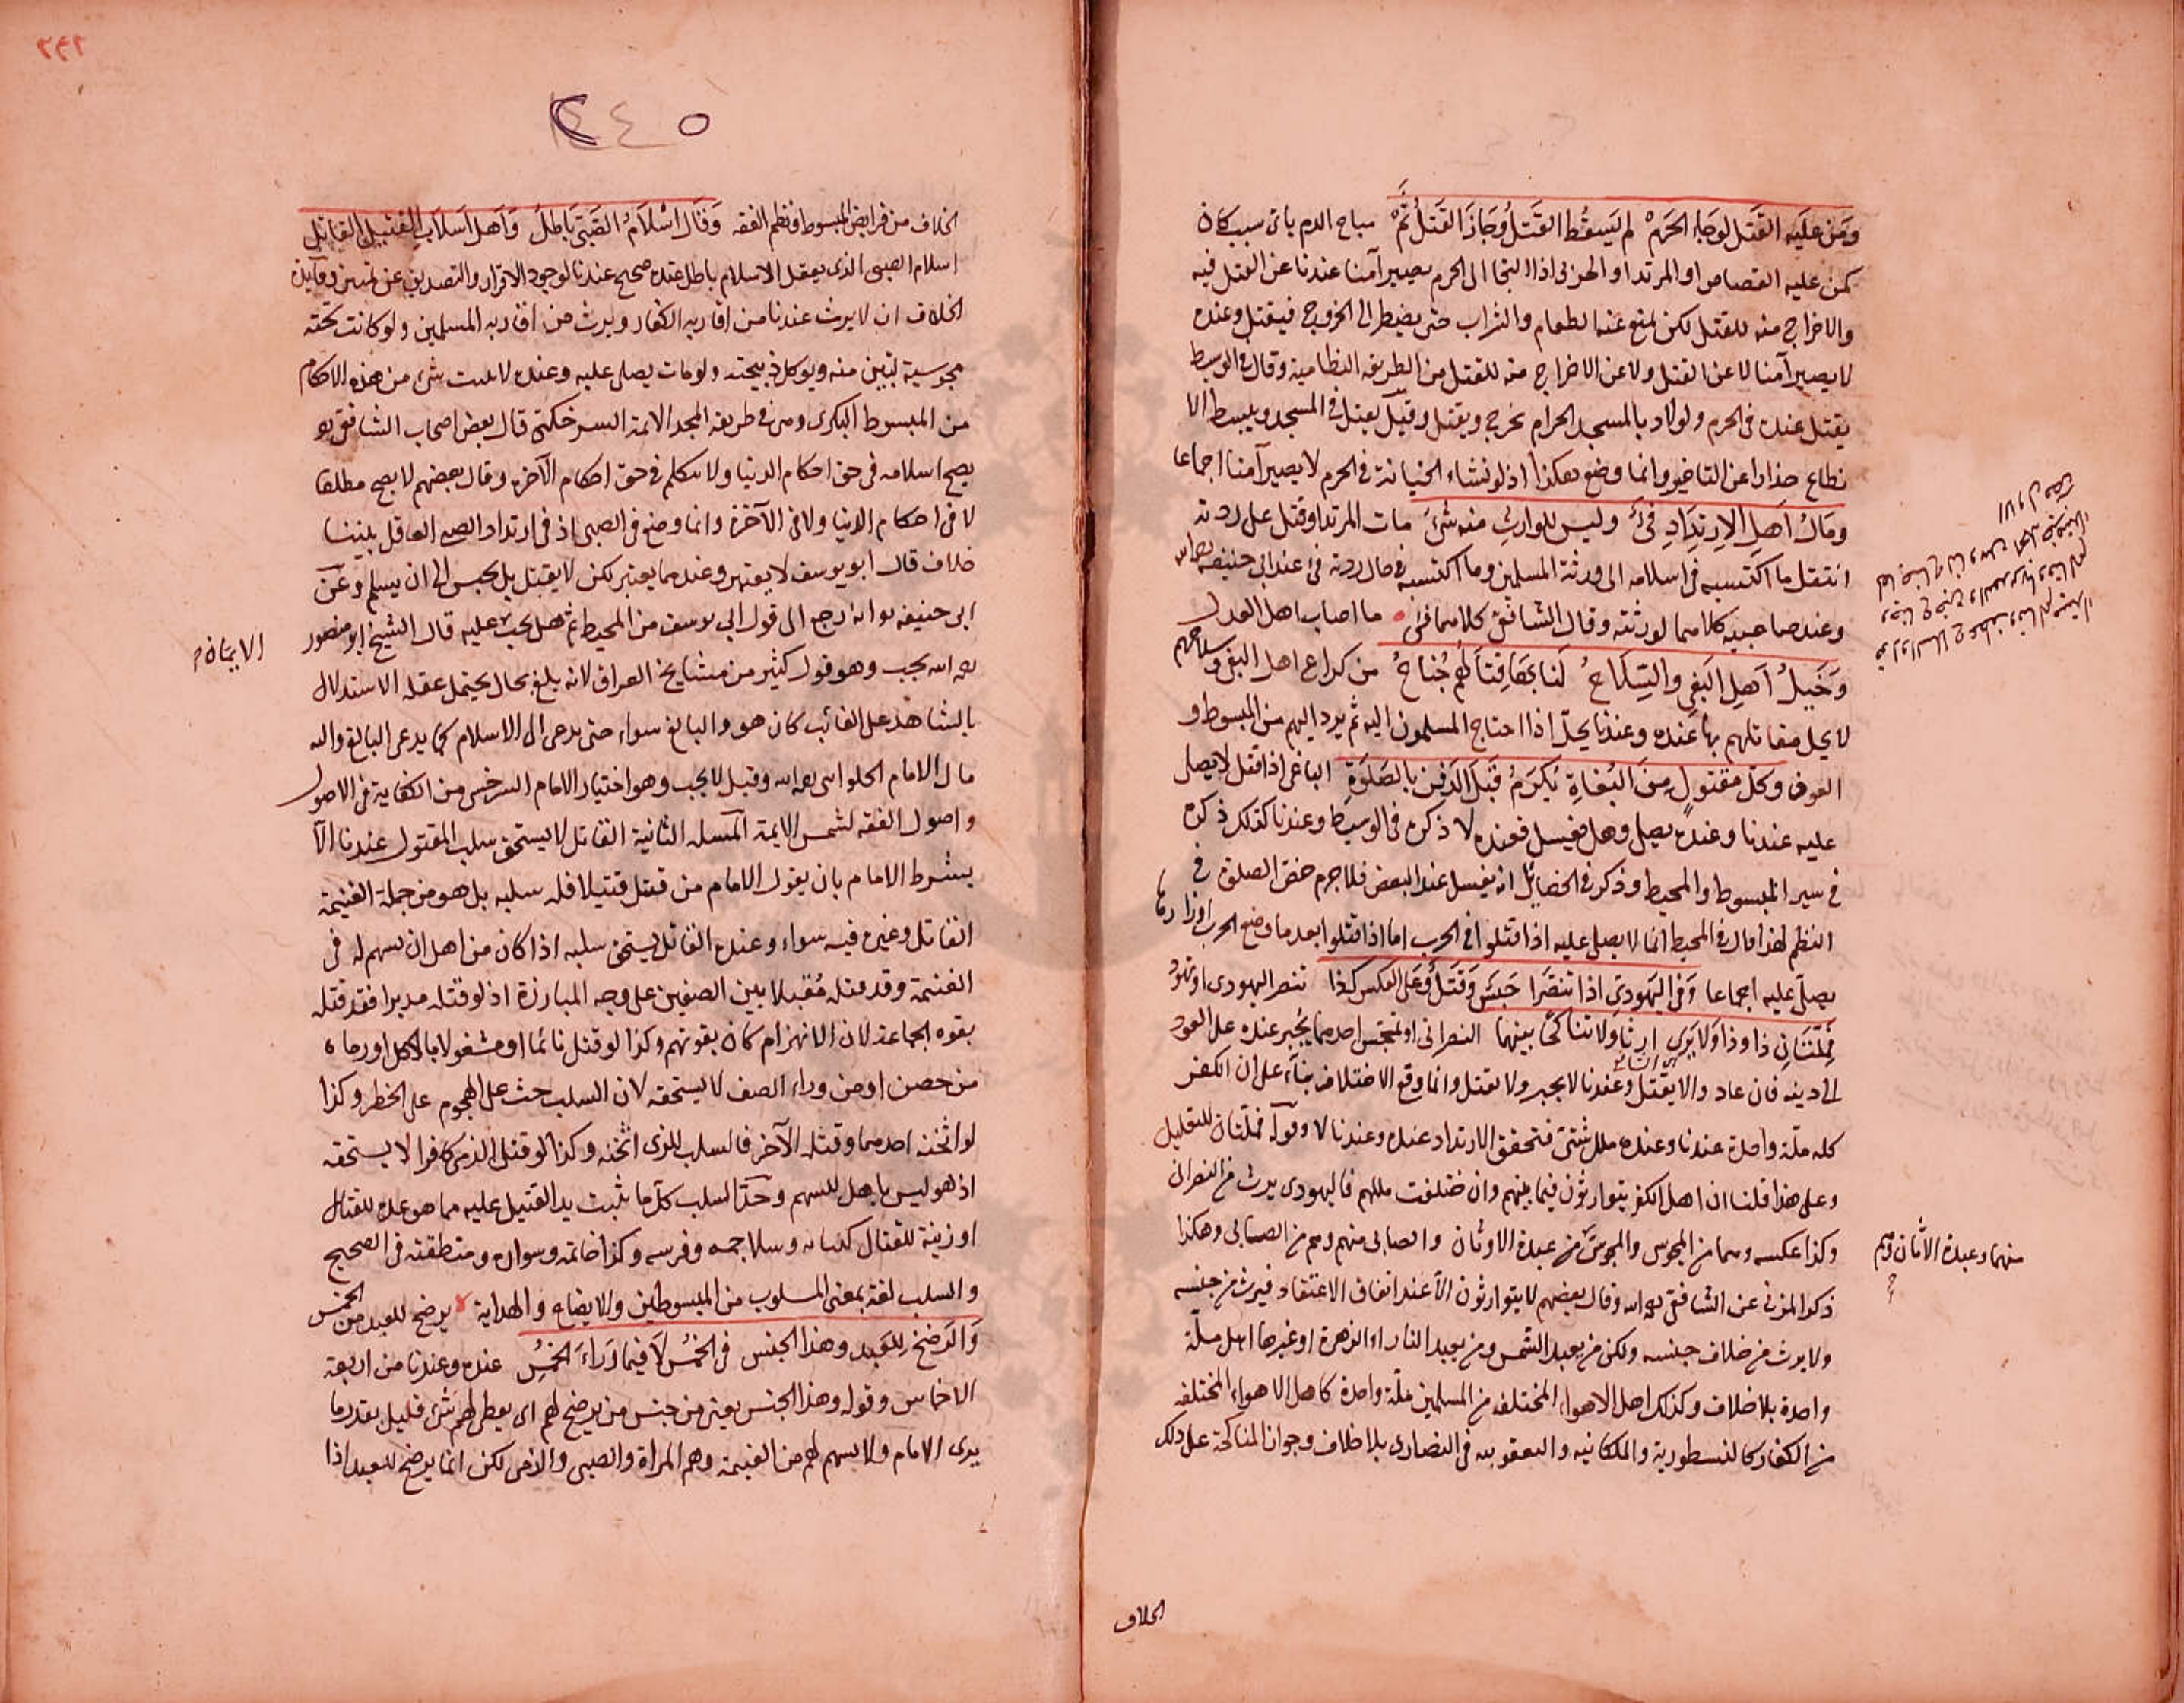 ومن عليه القتل لو جاء الحرم لم يسقط القتل وجاز القتل ثم مباح الدم باي سبب كان
كمن عليه القصاص او المرتد او الحربي اذا التجا الى الحرم يصير آمنا عندنا عن القتل فيه
والاخراج منه للقتل لكن يمنع عنه الطعام والشراب حتى يضطر الى الخروج فيقتل وعنده
لا يصير آمنا لا عن القتل ولا عن الاخراج منه للقتل من الطريقة النظامية وقال في الوسيط
يقتل عنده في الحرم ولو لاذ بالمسجد الحرام يخرج ويقتل وقيل يقتل في المسجد ويبسط الا
نطاع حذارا عن التاخير وانما وضع هكذا اذ لو نشاء الجناية في الحرم لا يصير آمنا اجماعا
ومال اهل الارتداد فيء وليس للوارث منه شيء مات المرتد او قتل على ردته
انتقل ما اكتسبه في اسلامه الى ورثة المسلمين وما اكتسبه في حال ردته فيء عند ابي حنيفة رحمه الله
وعند صاحبيه كلاهما لورثته وقال الشافعي كلاهما فيء ما اصاب اهل العدل
وخيل اهل البغي والسلاح لنا بها قتالهم جناح من كراع اهل البغي وسلاحهم
لا يحل مقاتلهم بها عنده وعندنا يحل اذا احتاج المسلمون اليه ثم يرد اليهم من المبسوط و
العون وكل مقتول من البغاة يكرم قبل الدفن بالصلوة الباغي اذا قتل لا يصلى
عليه عندنا وعنده يصلى وهل يغسل فعنده لا ذكره في الوسيط وعندنا كذلك ذكره
في سير المبسوط والمحيط وذكر في الخصائل انه يغسل عند البعض فلا جرم خص الصلوة في
النظم لهذا قال في المحيط انما لا يصلى عليه اذا قتلوا في الحرب اما اذا قتلوا بعد ما وضع الحرب اوزارها
يصلى عليه اجماعا وفي اليهودي اذا تنصرا حبس وقتل وعلى العكس كذا تنصر اليهودي او تهود
فملتان ذا وذا ولا يرى ارثا ولا تناكحا بينهما النصراني او تمجس احدهما يجبر عنده على العود
الى دينه فان عاد والا يقتل وعندنا لا يجبر ولا يقتل وانما وقع الاختلاف بناء على ان الكفر
كله ملة واحدة عندنا وعنده ملل شتى فتحقق الارتداد عنده وعندنا لا وقوله فملتان للتعليل
وعلى هذا قلنا ان اهل الكفر يتوارثون فيما بينهم وان ختلفت مللهم فاليهودي يرث من النصراني
وكذا عكسه وهما من المجوس والمجوس من عبدة الاوثان والصابي منهم وهم من الصابي وهكذا
ذكر المزني عن الشافعي رحمه الله وقال بعضهم لا يتوارثون الا عند اتفاق الاعتقاد فيرث من جنسه
ولا يرث من خلاف جنسه ولكن من يعبد الشمس ومن يعبد النار او الزهرة او غيرها اهل ملة
واحدة بلا خلاف وكذلك اهل الاهواء المختلفة من المسلمين ملة واحدة كاهل الاهواء المختلفة
من الكفار كالنسطورية والملكانيه واليعقوبيه في النصارى بلا خلاف وجواز المناكحة على ذلك
منهما وعبدة الاثان وهم
الخلاف
٢٤٢
٢٤٥
الخلاف من فرايض المبسوط ونظم الفقه وقال اسلام الصبي باطل واهل اسلاب القتيل القاتل
اسلام الصبي الذي يعقل الاسلام باطل عنده صحيح عندنا لوجود الاقرار والتصديق عن تميز وفايدة
الخلاف ان لا يرث عندنا من اقاربه الكفار ويرث من اقاربه المسلمين ولو كانت تحته
مجوسية تبين منه ويوكل ذبيحته ولو مات يصلى عليه وعنده لا يثبت شيء من هذه الاحكام
من المبسوط البكري ومن في طريقة المجد الايمة السرخكتي قال بعض اصحاب الشافعي
يصح اسلامه في حق احكام الدنيا ولا نتكلم في حق احكام الآخرة وقال بعضهم لا يصح مطلقا
لا في احكام الدنيا ولا في الآخرة وانما وضع في الصبي اذ في ارتداد الصبي العاقل بيننا
خلاف قال ابو يوسف لا يعتبر وعندهما يعتبر لكن لا يقتل بل يحبس الى ان يسلم وعن
ابي حنيفة انه رجع الى قول ابي يوسف من المحيط ثم هل يجب عليه قال الشيخ ابو منصور
الايمان
رحمه الله يجب وهو قول كثير من مشايخ العراق لانه بلغ بحال يحتمل عقله الاستدلال
بالشاهد على الغائب كان هو والبالغ سواء حتى يدعى الى الاسلام كما يدعى البالغ واليه
مال الامام الحلواني رحمه الله وقيل لا يجب وهو اختيار الامام السرخسي من الكفاية في الاصول
واصول الفقه لشمس الايمة المسئلة الثانية القاتل لا يستحق سلب المقتول عندنا الا
بشرط الامام بان يقول الامام من قتل قتيلا فله سلبه بل هو من جملة الغنيمة
القاتل وغيره فيه سواء وعنده القاتل يستحق سلبه اذا كان من اهل ان يسهم له في
الغنيمة وقد قتله مقبلا بين الصفين على وجه المبارزة اذ لو قتله مدبرا فقد قتله
بقوة الجماعة لان الانهزام كان بقوتهم وكذا لو قتل نائما او مشغولا بالاكل او رماه
من حصن او من وراء الصف لا يستحقه لان السلب حث على الهجوم على الخطر وكذا
لو اثخنه احدهما وقتله الآخر فالسلب للذي اثخنه وكذا لو قتل الذمي كافرا لا يستحقه
اذ هو ليس باهل للسهم وحد السلب كل ما يثبت يد القتيل عليه مما هو عدة للقتال
او زينة للقتال كثيابه وسلاحه وفرسه وكذا خاتمه وسواره ومنطقته في الصحيح
والسلب لغة بمعنى المسلوب من المبسوطين والايضاح والهداية يرضخ للعبد من الخمس
والرضخ للعبد وهذا الجنس في الخمس لا فيما وراء الخمس عنده وعندنا من اربعة
الاخماس وقوله وهذا الجنس يعني من جنس من يرضخ لهم اي يعطى لهم شيء قليل بقدر ما
يرى الامام ولا يسهم لهم من الغنيمة وهم المراة والصبي والذمي لكن انما يرضخ للعبد اذا